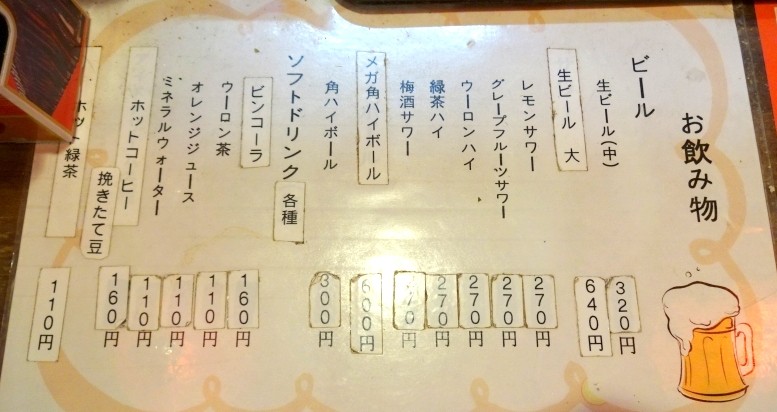 お飲み物
ビール
生ビール(中) 320円
生ビール 大 640円
レモンサワー 270円
グレープフルーツサワー 270円
ウーロンハイ 270円
緑茶ハイ 270円
梅酒サワー 270円
メガ角ハイボール 600円
角ハイボール 300円
ソフトドリンク 各種
ビンコーラ 160円
ウーロン茶 110円
オレンジジュース 110円
ミネラルウォーター 110円
ホットコーヒー 160円
挽きたて豆
ホット緑茶 110円